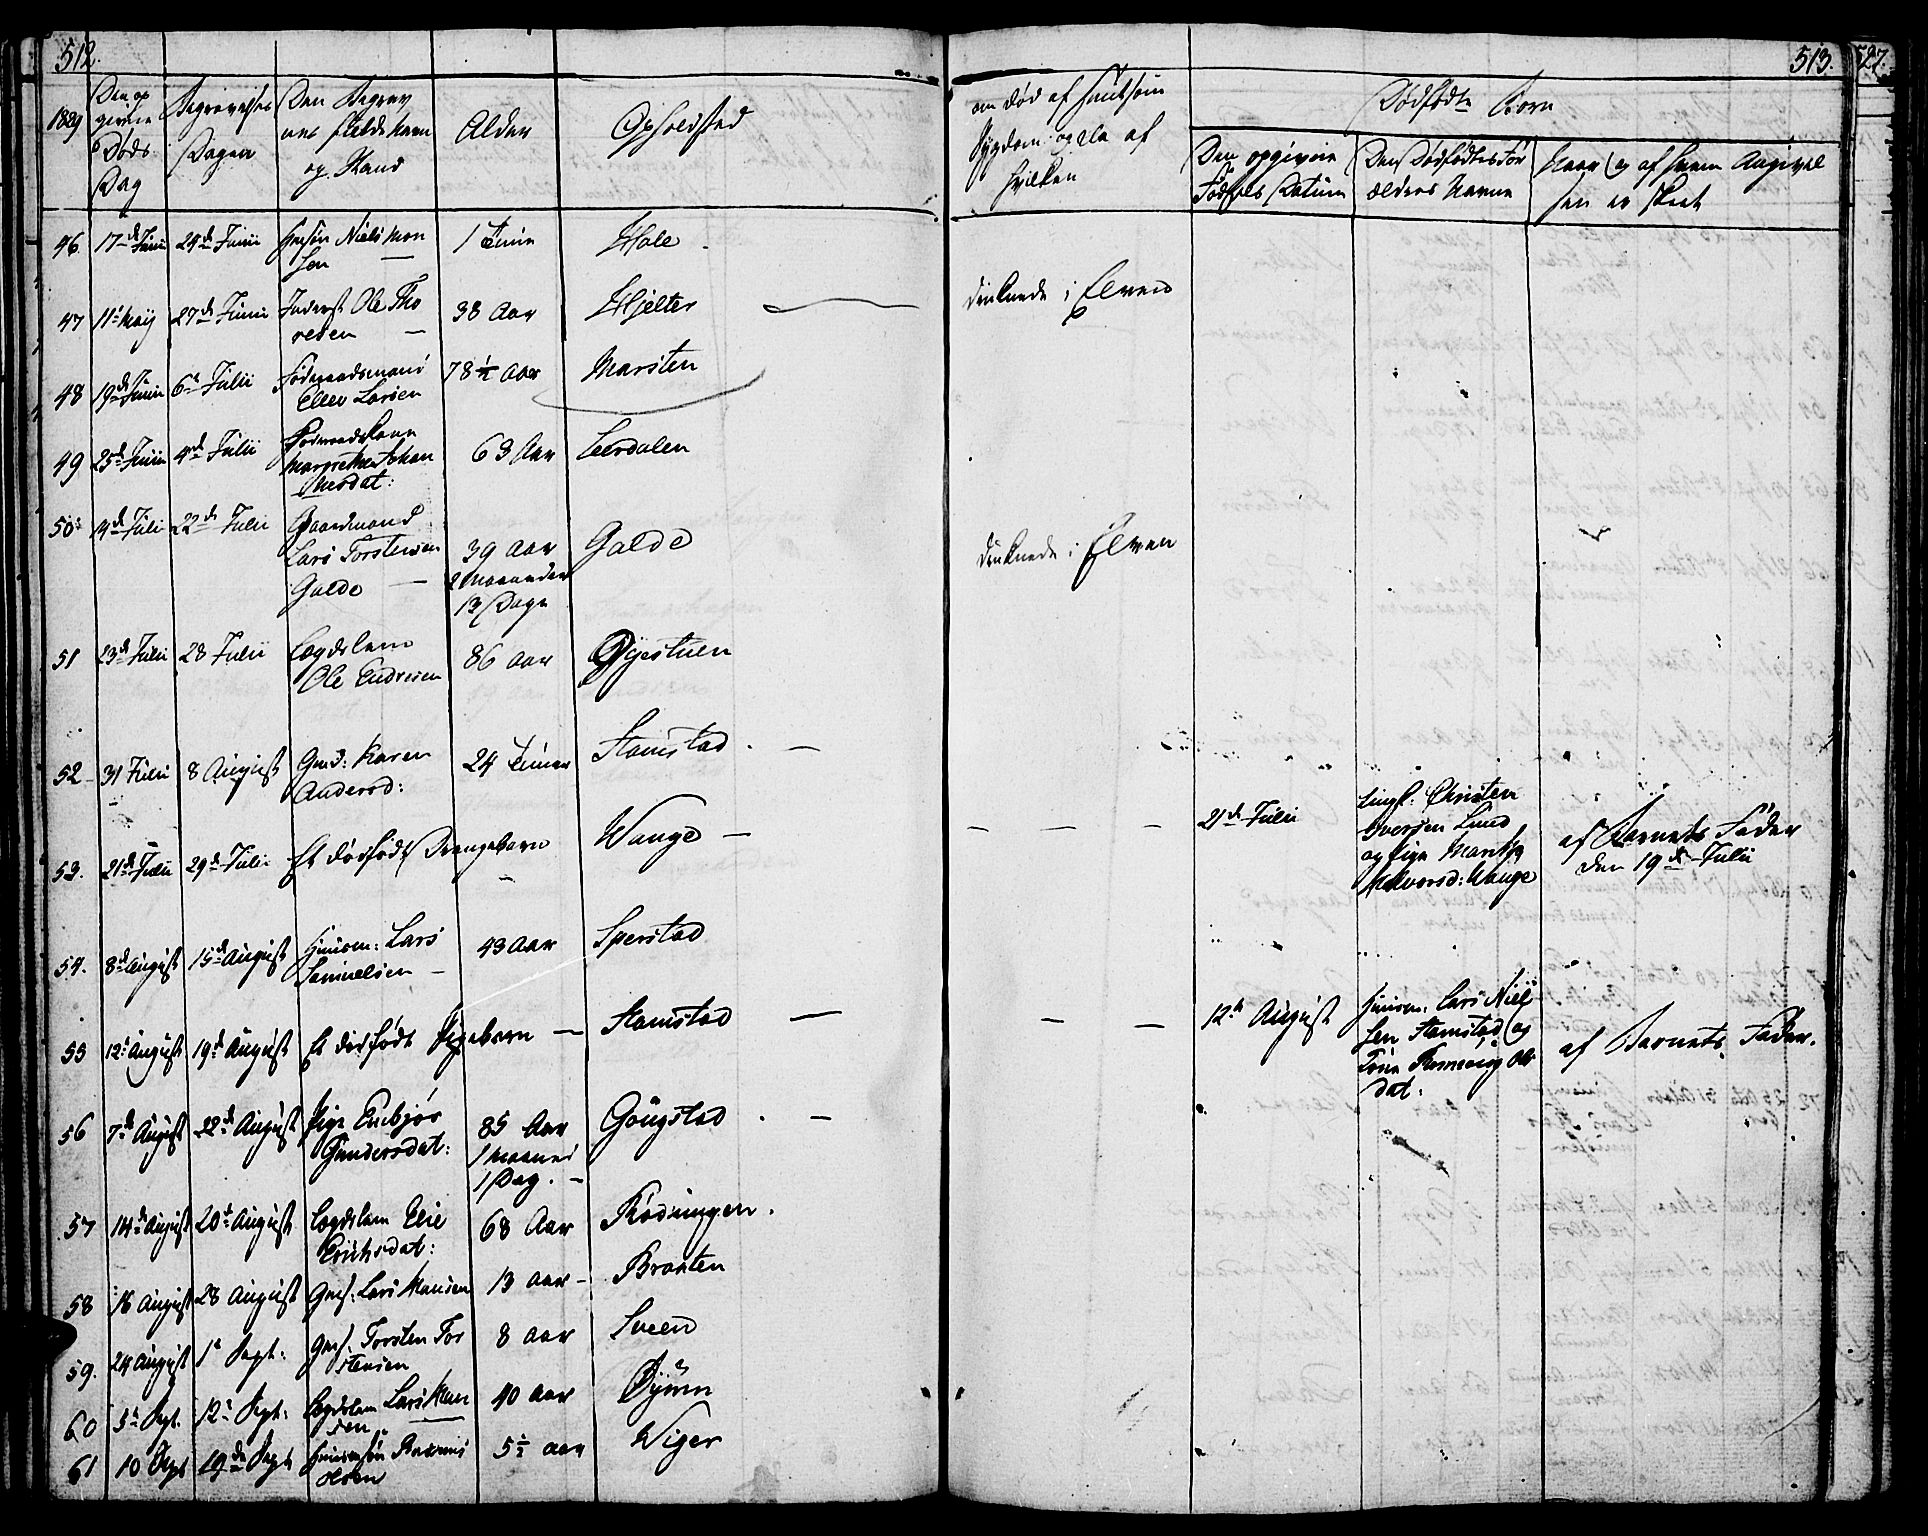 512.
513.
527.
1839
Den op
givne
Døds
Dag
Begravelses
Dagen
Den Begrav
nes fulde Navn
og Stand
Alder
Opholdsted
om død af smitsom
Sygdom og da af
hvilken
Dødfødte Børn
Den opgivne
Fødsels Datum
Den Dødfødtes For
ældres Navne
Naar og af hvem Angivel
sen er skeet
46. 17de Junii 24de Junii Niels Mon
sen 1 Time Hole
47 11te Maij 27de Junii Inderst Ole Tho
resen 38 Aar Hjelter druknede i Elven
48 19de Junii 6te Julii Føderaadsmand
Ellev Larsen 78½ Aar Marsten
49 25de Junii 4de Julii Føderaadskone
Margrethe Johan
nesdat: 63 Aar Leerdalen
50 14de Julii 22de Julii Gaardmand
Lars Torstensen
Galde 39 Aar
2 Maaneder
13 Dage Galde druknede i Elven
51 23de Julii 28 Julii Lægdslem
Ole Endresen 86 Aar
52 31 Julii 8 August Gmd: Karen
Andersd: 24 Timer Stamstad
53. 21de Julii 29de Julii Et dødfødt Drengebarn Wange 21de Julii
Ungk: Christen
Iversen Lund
og Pige Marithe
Halvorsd: Wange
af Barnets Fader
den 19de Julii
54. 8de August 15de August Huusm: Lars
Samuelsen 43 Aar Sperstad
55 12te August 19de August Et dødfødt Pigebarn Stamstad 12te August
Huusm: Lars Niel
sen Stamstad og
Kone Ols
dat:
af Barnets Fader.
56 7de August 22de August Pige Enbjør
Gundersdat: 85 Aar
1 Maaned
1 Dag. Gougstad
57 14de August 20de August Lægdslem Elie
Erichsdat: 68 Aar Rødningen.
58 16 August 28 August Gms: Lars Hansen 13 Aar Braaten
59. 24 August 1te Sept: Gms: Torsten Tor
stensen 8 Aar Sveen
60 5te Sept. 12te Sept: Lægdslem Lars Han
sen 40 Aar Øyum
61 10 Sept 19de Sept Huusmsøn Rasmus
Olsen 5½ Aar Wiger